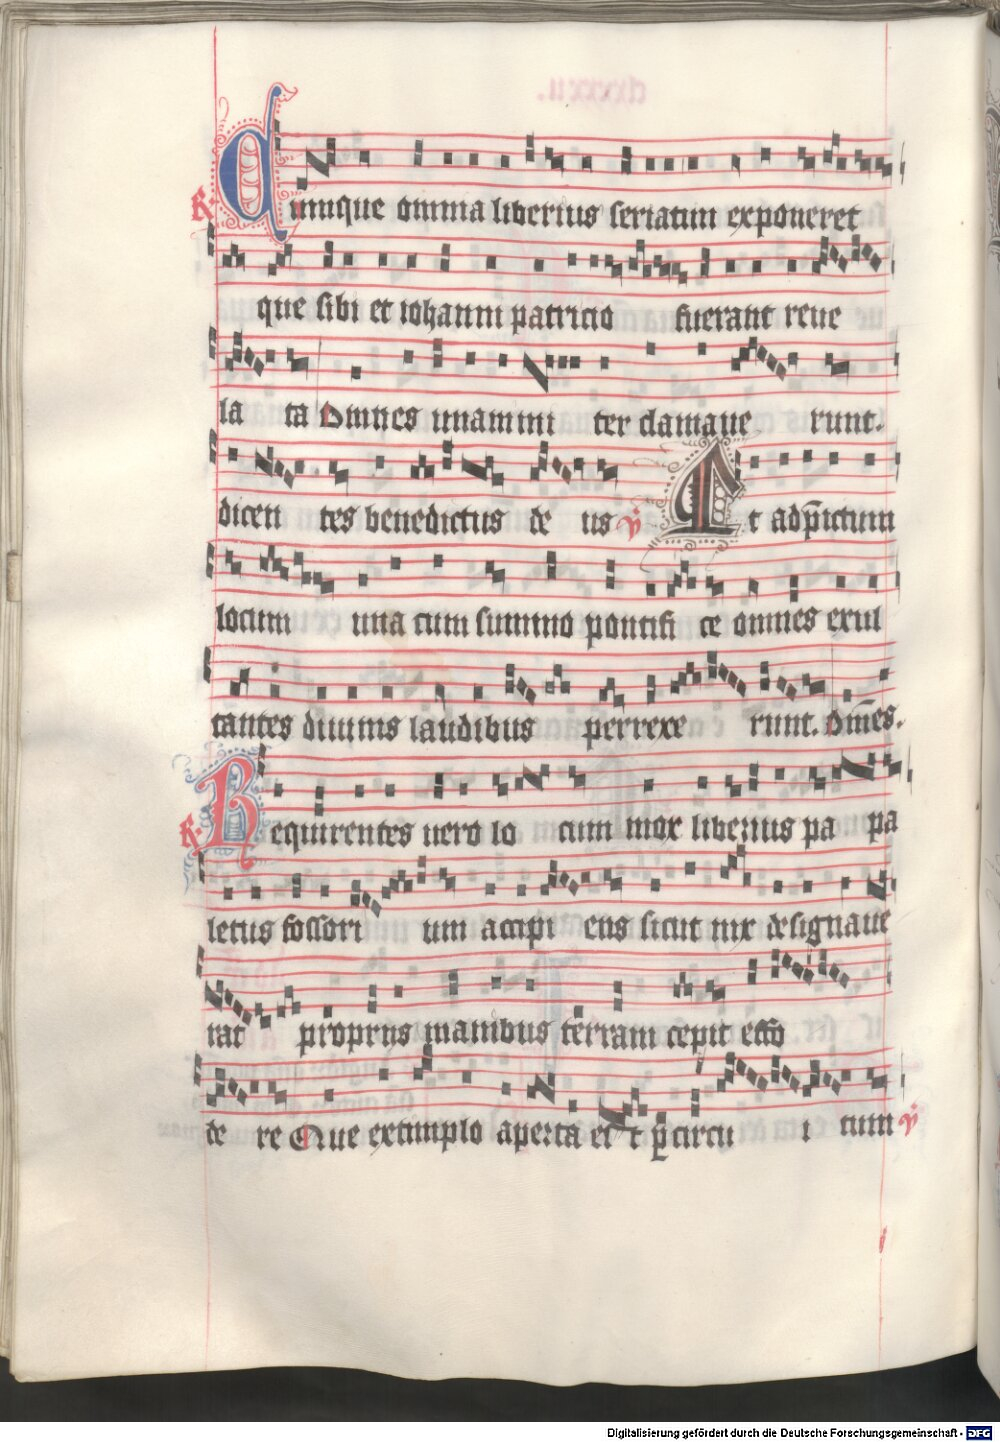 R. Cumque omnia liberius seriatim exponeret
que sibi et iohanni patricio fuerant reue
la ta Omnes unanimi ter clamaue runt.
dicen tes benedictus de us v At adp̄ictum
locum una cum summo pontifi ce omnes exul
tantes diuinis laudibus perrexe runt. Om̄es.
R. Requirentes uero lo cum mox liberius pa pa
letus fossori um accipi ens sicut nix designaue
rat proprijs manibus terram cepit effo
de re Que extimplo aperta est et p̲ circu i tum v
Digitalisierung gefördert durch die Deutsche Forschungsgemeinschaft - DFG